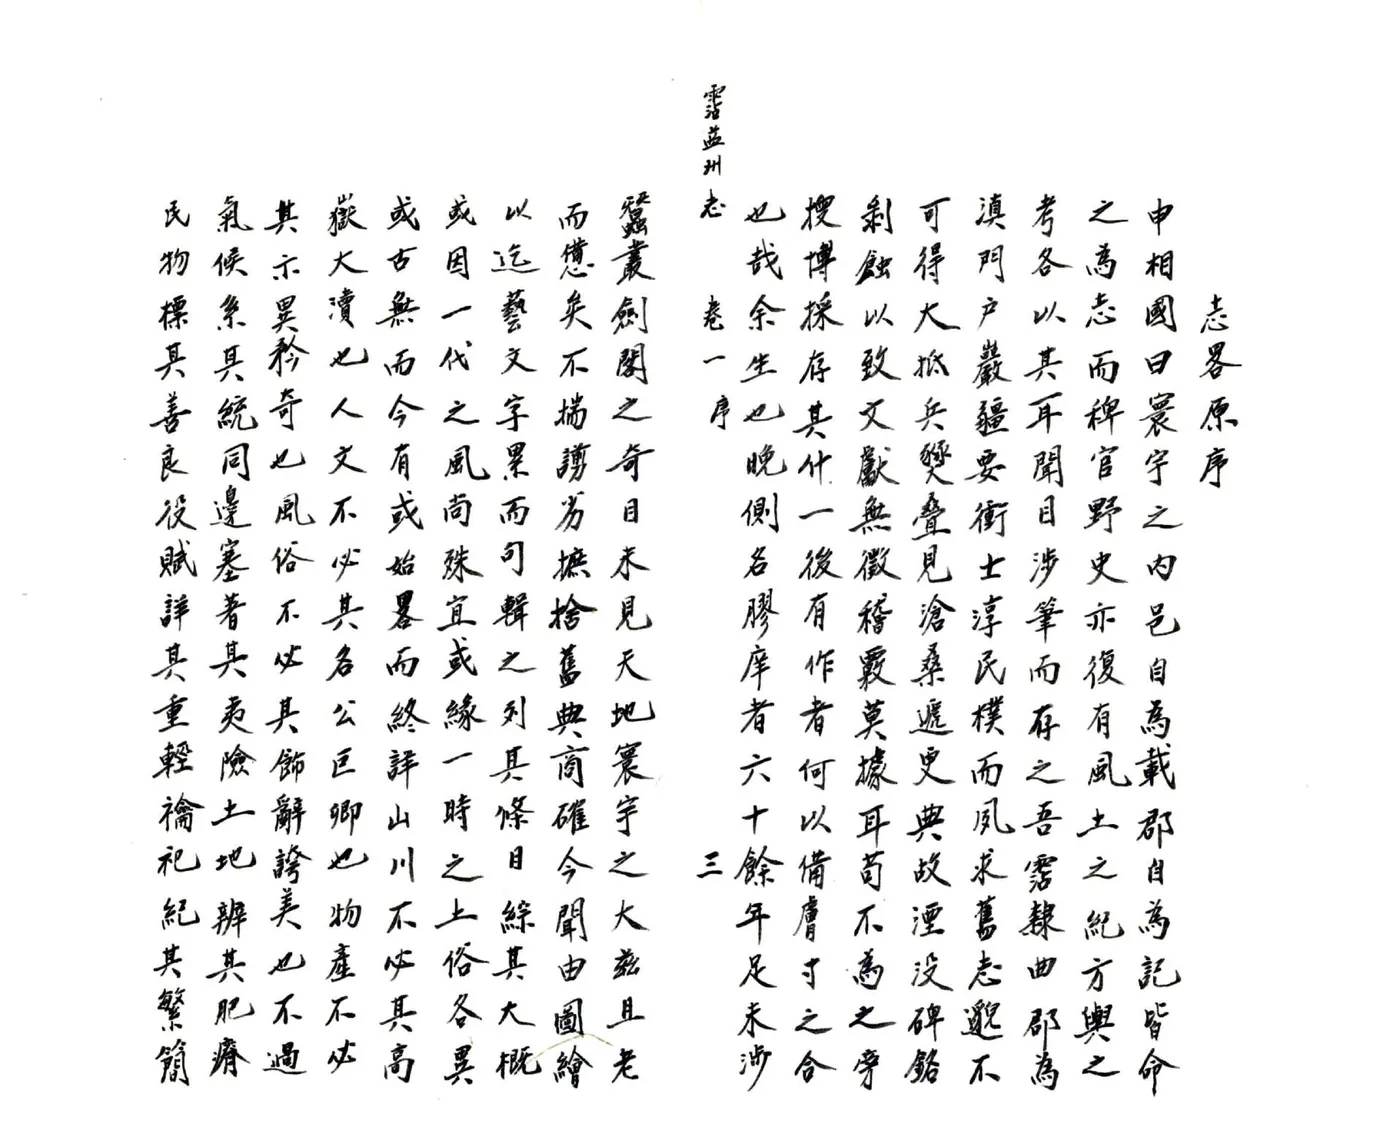 志畧原序
申相國曰寰宇之內邑自為載郡自為記皆命
之為志而稗官野史亦復有風土之紀方輿之
考各以其耳聞目涉筆而存之吾霑隸曲郡為
滇門戶嚴疆要衝士淳民樸而夙求舊志邈不
可得大抵兵燹疊見滄桑遞更典故湮没碑銘
剝蝕以致文獻無徵稽覈莫據耳苟不為之旁
搜博採存其什一後有作者何以備膚寸之合
也哉余生也晚側名膠庠者六十餘年足未涉
霑益州志 卷一 序 三
蠶叢劍閣之奇目未見天地寰宇之大茲且老
而憊矣不揣謭劣摭拾舊典商確今聞由圖繪
以迄藝文字累而句輯之列其條目綜其大概
或因一代之風尚殊宜或緣一時之土俗各異
或古無而今有或始畧而終詳山川不必其高
嶽大瀆也人文不必其名公巨卿也物產不必
其示異矜奇也風俗不必其飾辭誇美也不過
氣候系其統同邊塞著其夷險土地辨其肥瘠
民物標其善良役賦詳其重輕禴祀紀其繁簡